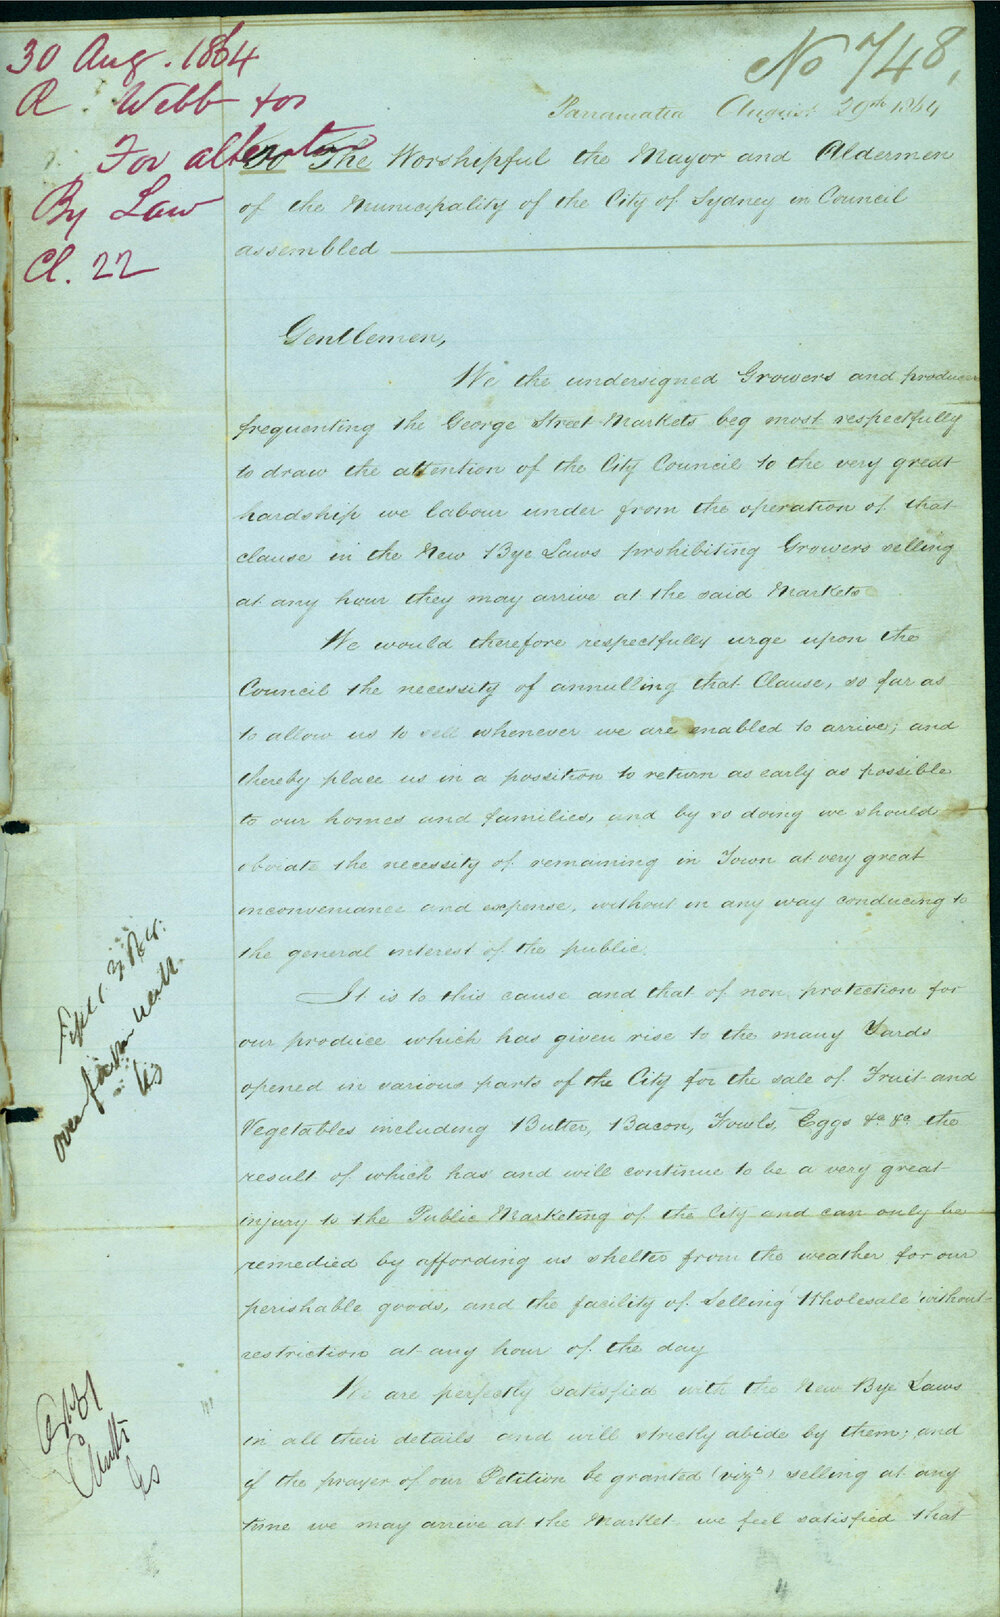 30 Aug. 1864
R Webb & ors
For alteration
By Law
Cl. 22
No 748,
Parramatta August 29th 1864
To The Worshipful the Mayor and Aldermen
of the Municipality of the City of Sydney in Council
assembled
Gentlemen,
We the undersigned Growers and producers
frequenting the George Street Markets beg most respectfully
to draw the attention of the City Council to the very great
hardship we labour under from the operation of that
clause in the New Bye Laws prohibiting Growers selling
at any hour they may arrive at the said Markets
We would therefore respectfully urge upon the
Council the necessity of annulling that Clause, so far as
to allow us to sell whenever we are enabled to arrive; and
thereby place us in a possition to return as early as possible
to our homes and families, and by so doing we should
obviate the necessity of remaining in Town at very great
inconveniance and expense, without in any way conducing to
the general interest of the public.
It is to this cause and that of non protection for
our produce which has given rise to the many Yards
opened in various parts of the City for the sale of Fruit and
Vegetables including Butter, Bacon, Fowls, Eggs &c &c the
result of which has and will continue to be a very great
injury to the Public Marketing of the City and can only be
remedied by affording us shelter from the weather for our
perishable goods, and the facility of Selling Wholesale without
restriction at any hour of the day
We are perfectly satisfied with the New Bye Laws
in all their details and will strictly abide by them; and
if the prayer of our Petition be granted (vizt) selling at any
time we may arrive at the Market we feel satisfied that
over
4